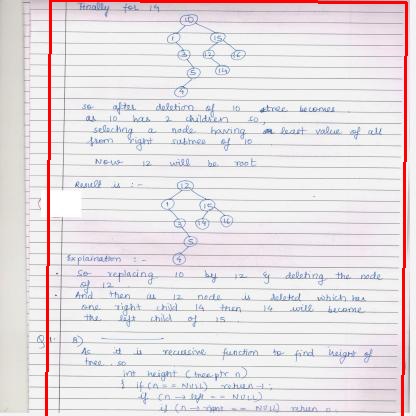 Finally for 14
10
1 15
3 12 16
5 14
4
so after deletion of 10 tree becomes
as 10 has 2 children so,
selecting a node having least value of all
from right subtree of 10
Now 12 will be root
Result is :-
12
1 15
3 14 16
5
4
Explaination :-
• So replacing 10 by 12 & deleting the node
of 12
• And then as 12 node is deleted which has
one right child 14 then 14 will become
the left child of 15
B)
As it is recursive function to find height of
tree so
int height (tree ptr n)
{ if (n == NULL) return -1;
if (n → left == NULL)
if (n → right == NULL) return 0;